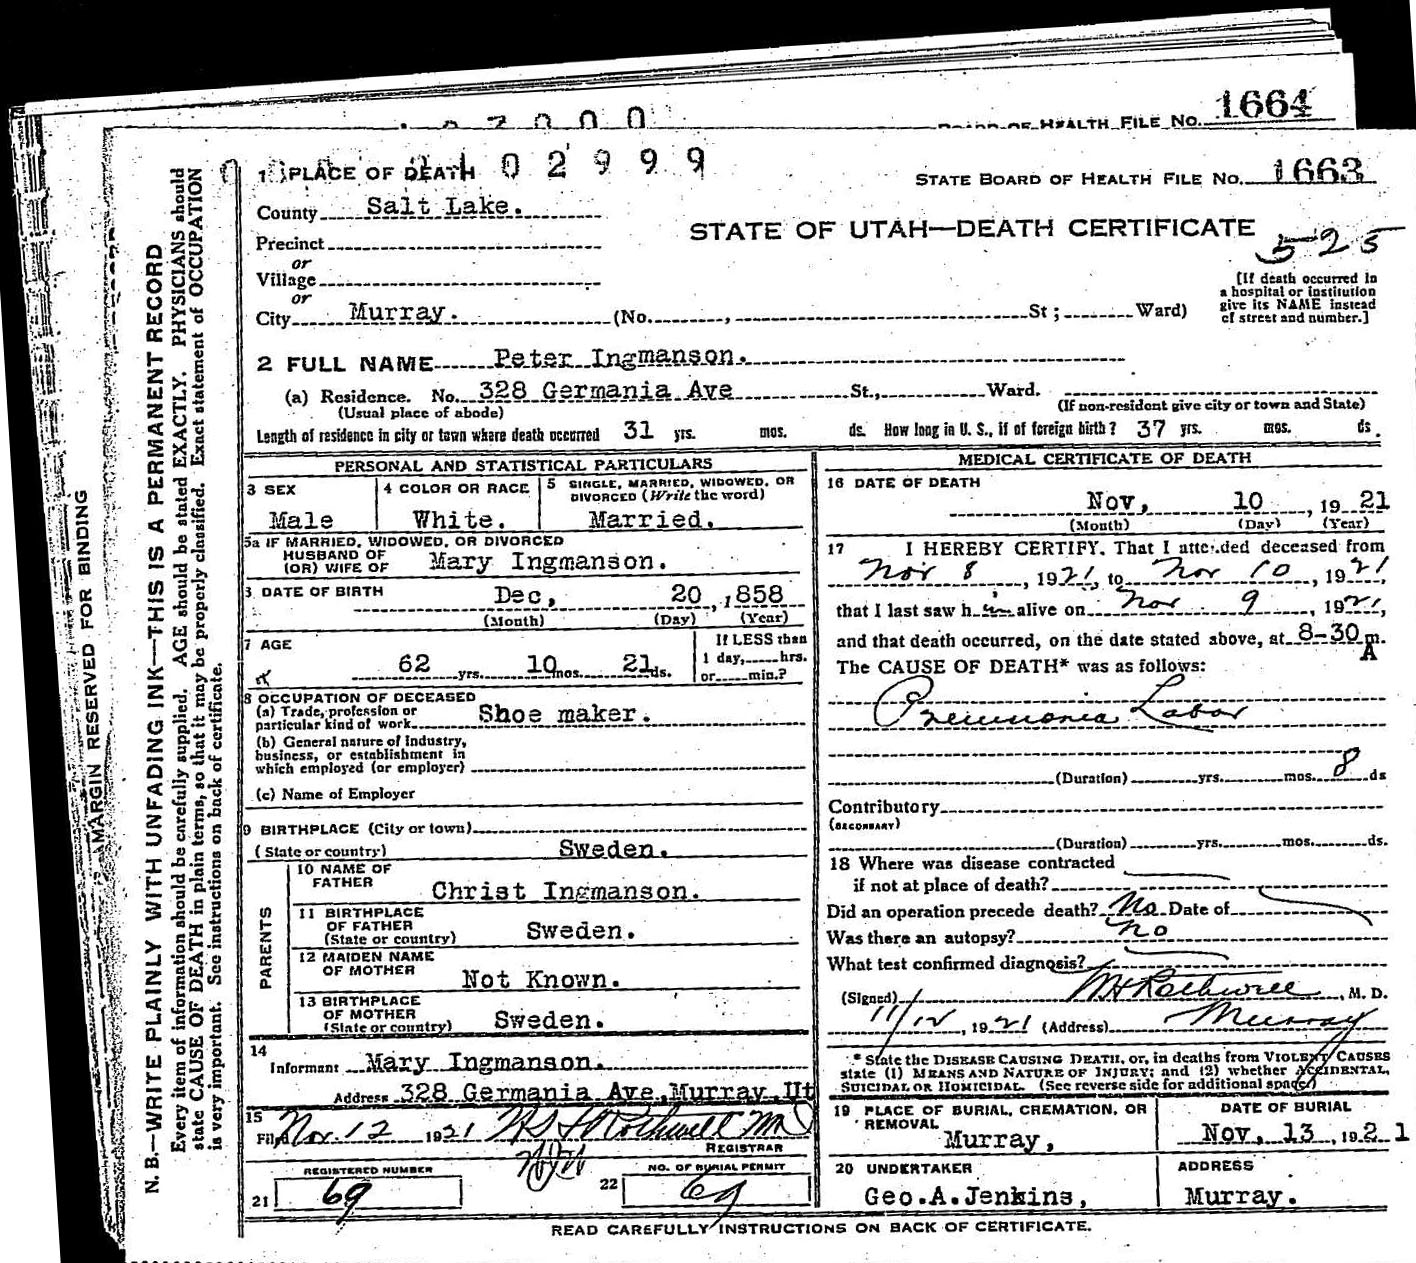 BOARD OF HEALTH FILE NO. 1664
1 PLACE OF DEATH 02999
STATE BOARD OF HEALTH FILE NO. 1663
County Salt Lake.
STATE OF UTAH—DEATH CERTIFICATE
525
Precinct
or
Village
or
City Murray. (No. , St ; Ward)
[If death occurred in
a hospital or institution
give its NAME instead
of street and number.]
2 FULL NAME Peter Ingmanson.
(a) Residence. No. 328 Germania Ave St., Ward.
(Usual place of abode) (If non-resident give city or town and State)
Length of residence in city or town where death occurred 31 yrs. mos. ds. How long in U. S., if of foreign birth? 37 yrs. mos. ds.
PERSONAL AND STATISTICAL PARTICULARS
3 SEX
Male
4 COLOR OR RACE
White.
5 SINGLE, MARRIED, WIDOWED, OR
DIVORCED (Write the word)
Married.
5a IF MARRIED, WIDOWED, OR DIVORCED
HUSBAND OF
(OR) WIFE OF Mary Ingmanson.
3 DATE OF BIRTH Dec, 20 , 1858
(Month) (Day) (Year)
7 AGE
62 yrs. 10 mos. 21 ds.
If LESS than
1 day, hrs.
or min.?
8 OCCUPATION OF DECEASED
(a) Trade, profession or
particular kind of work Shoe maker.
(b) General nature of industry,
business, or establishment in
which employed (or employer)
(c) Name of Employer
9 BIRTHPLACE (City or town)
(State or country) Sweden.
PARENTS
10 NAME OF
FATHER Christ Ingmanson.
11 BIRTHPLACE
OF FATHER
(State or country) Sweden.
12 MAIDEN NAME
OF MOTHER Not Known.
13 BIRTHPLACE
OF MOTHER
(State or country) Sweden.
14
Informant Mary Ingmanson.
Address 328 Germania Ave, Murray, Ut
15
Filed Nov 12 1921 Rothwell MD
REGISTRAR
REGISTERED NUMBER
21 69
NO. OF BURIAL PERMIT
22 69
MEDICAL CERTIFICATE OF DEATH
16 DATE OF DEATH
Nov, 10 , 1921
(Month) (Day) (Year)
17 I HEREBY CERTIFY, That I attended deceased from
Nov 8 , 1921, to Nov 10 , 1921,
that I last saw him alive on Nov 9 , 1921,
and that death occurred, on the date stated above, at 8-30 A m.
The CAUSE OF DEATH* was as follows:
Pneumonia Labar
(Duration) yrs. mos. 8 ds
Contributory
(SECONDARY)
(Duration) yrs. mos. ds.
18 Where was disease contracted
if not at place of death?
Did an operation precede death? No Date of
Was there an autopsy? no
What test confirmed diagnosis?
(Signed) Rothwell , M. D.
11/12 , 1921 (Address) Murray
* State the DISEASE CAUSING DEATH, or, in deaths from VIOLENT CAUSES
state (1) MEANS AND NATURE OF INJURY; and (2) whether ACCIDENTAL,
SUICIDAL OR HOMICIDAL. (See reverse side for additional space)
19 PLACE OF BURIAL, CREMATION, OR
REMOVAL Murray,
DATE OF BURIAL
Nov, 13 , 1921
20 UNDERTAKER
Geo.A.Jenkins,
ADDRESS
Murray.
READ CAREFULLY INSTRUCTIONS ON BACK OF CERTIFICATE.
MARGIN RESERVED FOR BINDING
N. B.—WRITE PLAINLY WITH UNFADING INK—THIS IS A PERMANENT RECORD
Every item of information should be carefully supplied. AGE should be stated EXACTLY. PHYSICIANS should
state CAUSE OF DEATH in plain terms, so that it may be properly classified. Exact statement of OCCUPATION
is very important. See instructions on back of certificate.